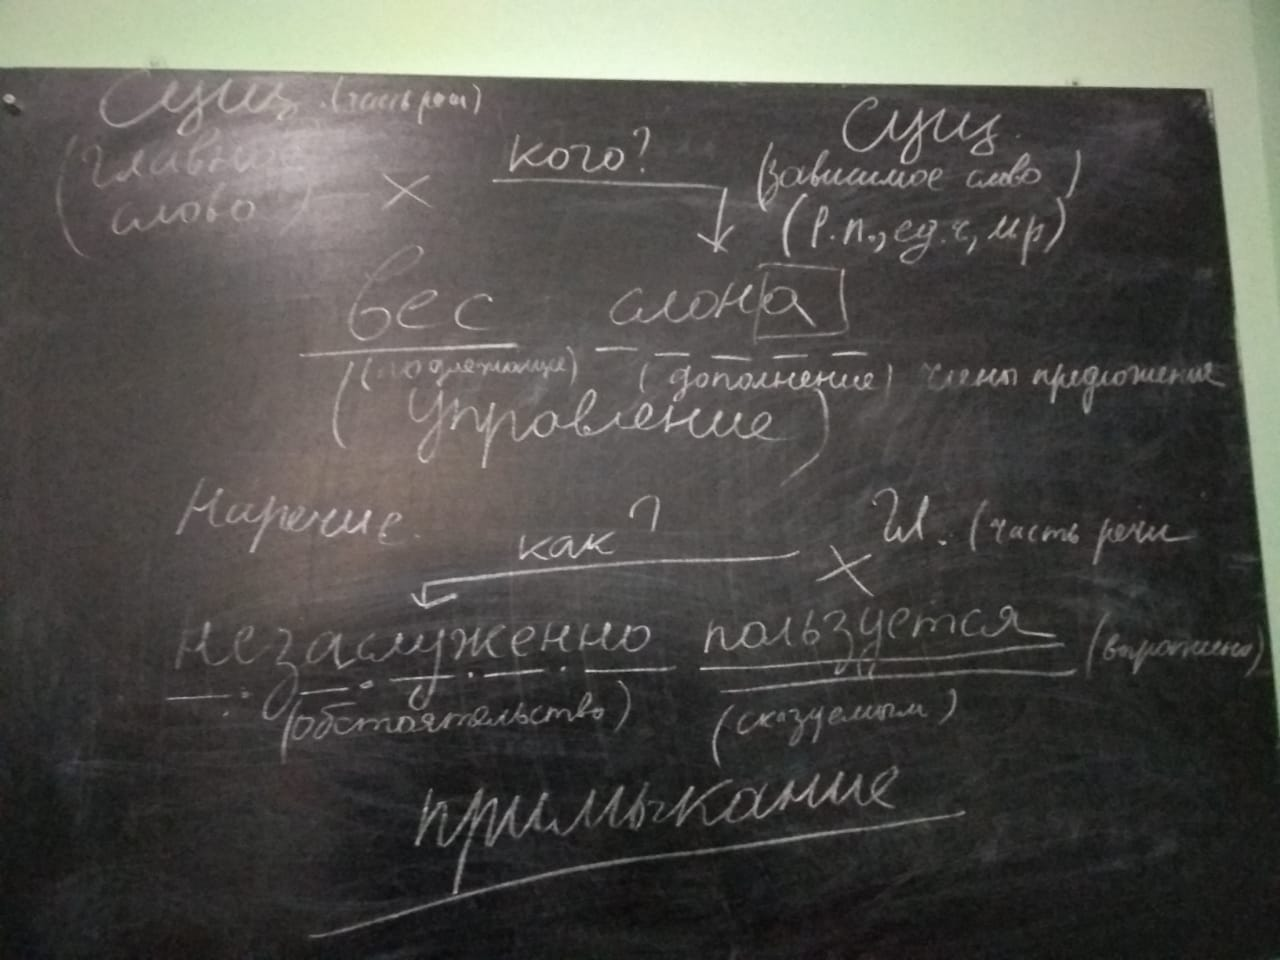 Сущ. (часть речи)
Сущ.
(главное
слово)
× кого?
(зависимое слово)
(Р.п., ед.ч, м р)
вес слона
(подлежащее) (дополнение) члены предложение
(управление)
Наречие. как? × Гл. (часть речи
незаслуженно пользуется (выражено)
(обстоятельство) (сказуемым)
примыкание